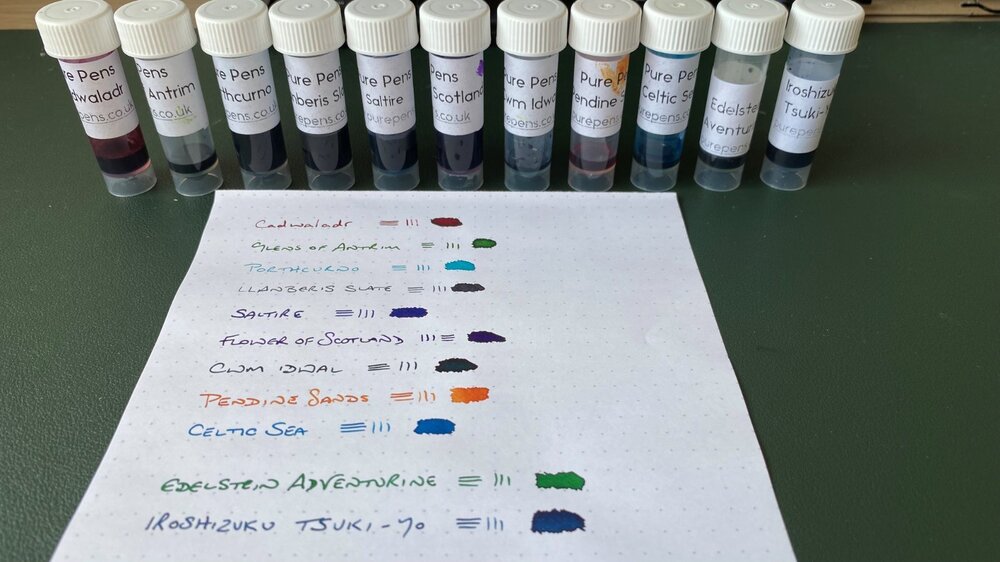 Pure Pens
dwaladr
epens.co.uk
Pens
Antrim
s.co.uk
Pens
thcurno
epens.co
Pure Pens
nberis Sla
urepens.c
Pure Pens
Saltire
purepens.
Pens
Scotland
s.co.uk
Pure Pens
wm Idwa
repens.co
Pure P
Pendine S
purepens.c
Pure Pens
Celtic Se
purepens.c
Edelste
Aventur
purepens
Iroshizu
Tsuki-
purepens
Cadwaladr
Glens of Antrim
Porthcurno
Llanberis Slate
Saltire
Flower of Scotland
Cwm Idwal
Pendine Sands
Celtic Sea
Edelstein Adventurine
Iroshizuku Tsuki-yo